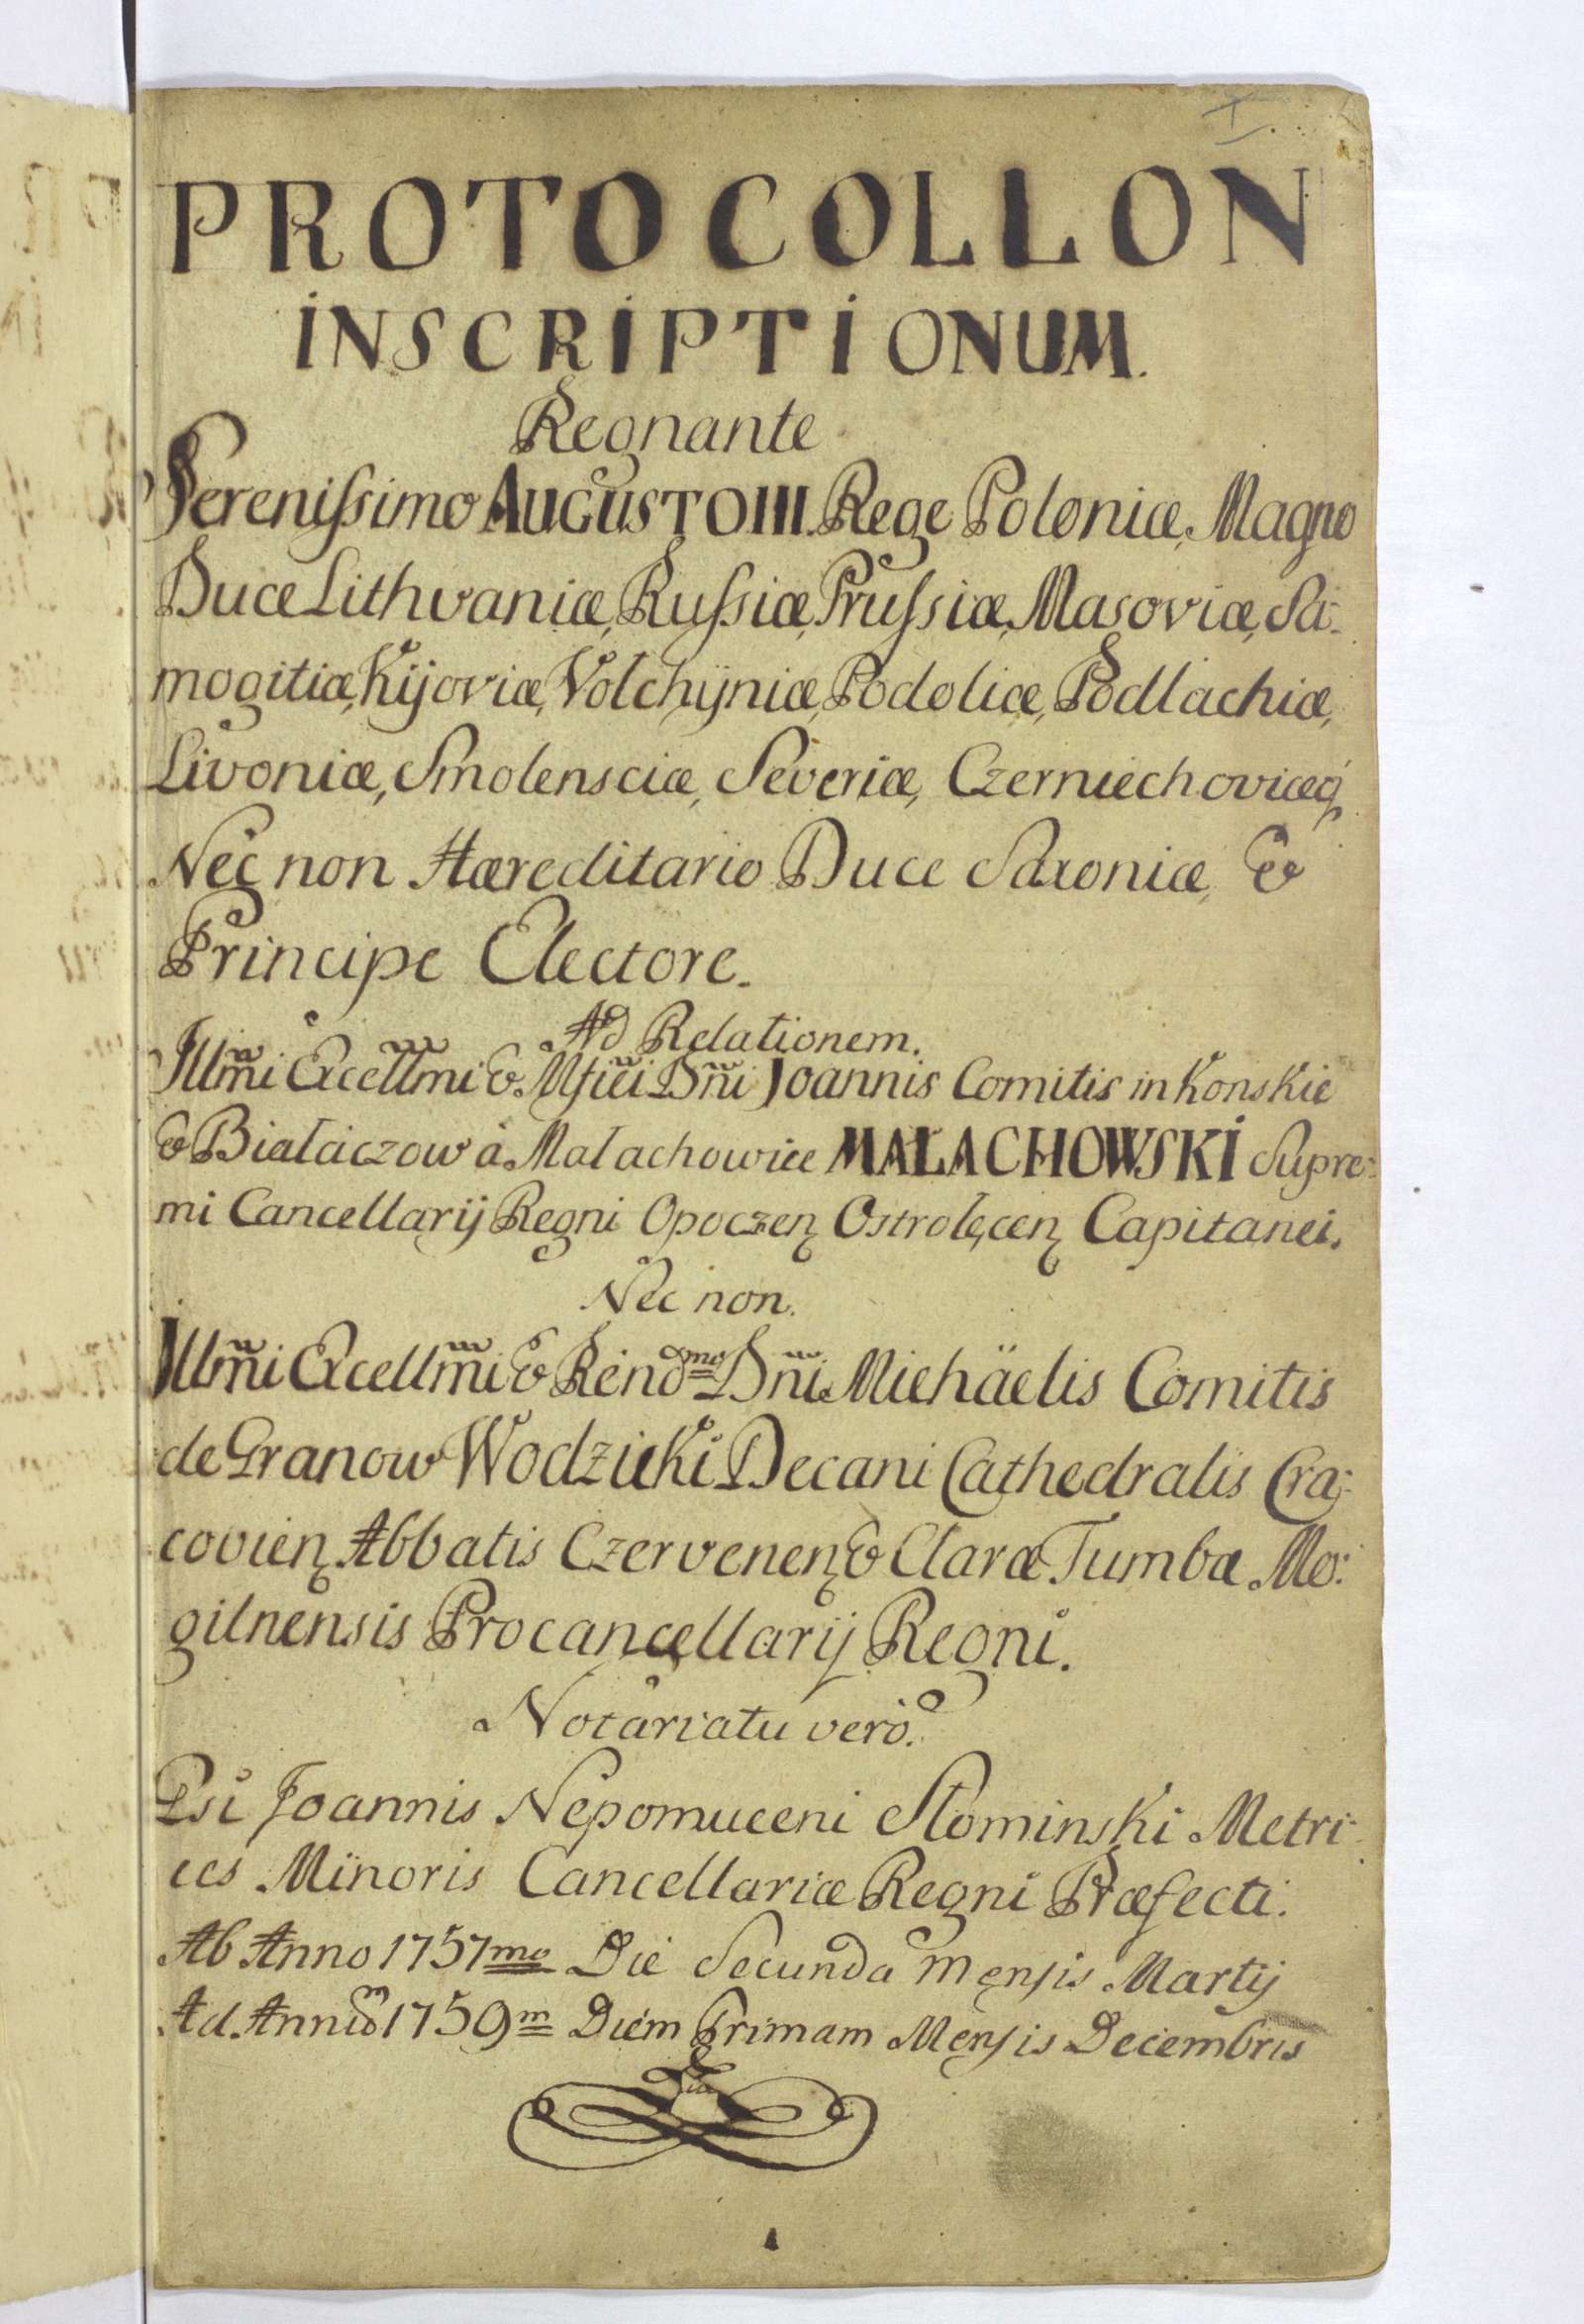 PROTOCOLLON
INSCRIPTIONUM.
Regnante
Serenissimo AUGUSTO III. Rege Poloniæ, Magno
Duce Lithvaniæ, Russiæ, Prussiæ, Masoviæ, Sa-
mogitiæ, Kijoviæ, Volchÿniæ, Podoliæ, Podlachiæ,
Livoniæ, Smolensciæ, Severiæ, Czerniechoviæq
Nec non Hæreditario Duce Saxoniæ, &
Principe Electore.
Ad Relationem.
Illm̃i Excellm̃i & Mfici Dñi Joannis Comitis in Konskie
& Białaczow à Małachowice MAŁACHOWSKI Supre:
mi Cancellarij Regni Opoczeń Ostrołęceń Capitanei.
Nec non.
Illm̃i Excellm̃i & Rendmo Dñi Michäelis Comitis
de Granow Wodzicki Decani Cathedralis Cra:
covien Abbatis Czervenen & Claræ Tumbæ Mo:
gilnensis Procancellarij Regni.
Notariatu verò.
Gsi Joannis Nepomuceni Słominski Metri-
ces Minoris Cancellariæ Regni Præfecti.
Ab Anno 1757mo Die Secunda Mensis Martij
Ad Annum 1759m Diem Primam Mensis Decembris